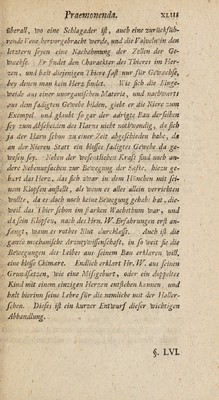 Praemonenda. XLIII
überall, wo eine Schlagader ist, auch eine zurückfüh-
rende Vene hervorgebracht werde, und die Valveln in den
letztern seyen eine Nachahmung der Zellen der Ge-
wächse. Er findet den Charakter des Thieres im Her-
zen, und hält diejenigen Thiere fast nur für Gewächse,
bey denen man kein Herz findet. Wie sich die Einge-
weide aus einer unorganischen Materie, und nachwerts
aus dem fadigten Gewebe bilden, giebt er die Niere zum
Exempel, und glaubt so gar der adrigte Bau derselben
sey zum Abscheiden des Harns nicht nothwendig, da sich
ja der Harn schon zu einer Zeit abgeschieden habe, da
an der Nieren Statt ein blosses fadigtes Gewebe da ge-
wesen sey. Neben der wesentlichen Kraft sind noch an-
dere Nebenursachen zur Bewegung der Säfte, hiezu ge-
hört das Herz, das sich zwar in dem Hünchen mit sei-
nem Klopfen anstellt, als wenn es alles allein verrichten
wollte, da es doch noch keine Bewegung gehabt hat, die-
weil das Thier schon im starken Wachsthum war, und
da sein Klopfen, nach des Hrn. W. Erfahrungen erst an-
fängt, wann es rothes Blut durchlässt. Auch ist die
ganze mechanische Arzneywissenschaft, in so weit sie die
Bewegungen des Leibes aus seinem Bau erklären will,
eine blosse Chimäre. Endlich erklärt Hr. W. aus seinen
Grundsätzen, wie eine Misgeburt, oder ein doppeltes
Kind mit einem einzigen Herzen entstehen können, und
hält hierinn seine Lehre für die nemliche mit der Haller-
schen. Dieses ist ein kurzer Entwurf dieser wichtigen
Abhandlung.
§. LVI.